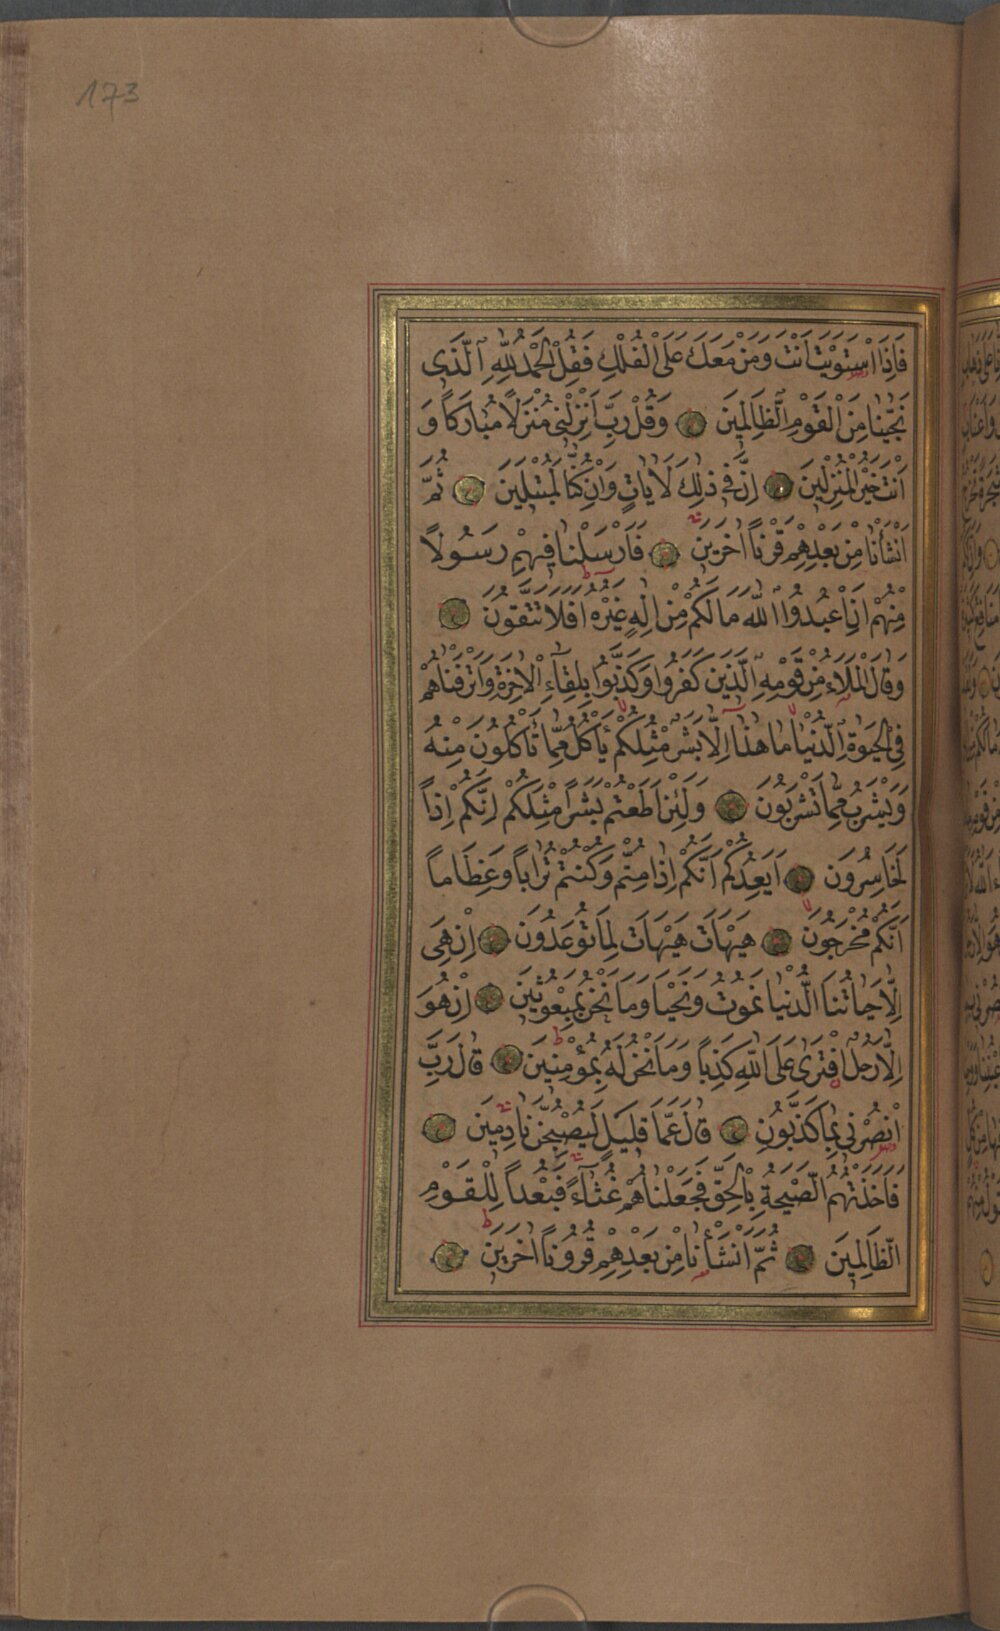 173
فَاِذَا اسْتَوَيْتَ اَنْتَ وَمَنْ مَعَكَ عَلَى الْفُلْكِ فَقُلِ الْحَمْدُ لِلّٰهِ الَّذى
نَجّٰينَا مِنَ الْقَوْمِ الظَّالِمينَ وَقُلْ رَبِّ اَنْزِلْنى مُنْزَلًا مُبَارَكاً وَ
اَنْتَ خَيْرُ الْمُنْزِلينَ اِنَّ فى ذٰلِكَ لَاٰيَاتٍ وَاِنْ كُنَّا لَمُبْتَلينَ ثُمَّ
اَنْشَأْنَا مِنْ بَعْدِهِمْ قَرْناً اٰخَرينَ فَاَرْسَلْنَا فيهِمْ رَسُولًا
مِنْهُمْ اَنِ اعْبُدُوا اللّٰهَ مَا لَكُمْ مِنْ اِلٰهٍ غَيْرُهُ اَفَلَا تَتَّقُونَ
وَقَالَ الْمَلَاُ مِنْ قَوْمِهِ الَّذينَ كَفَرُوا وَكَذَّبُوا بِلِقَاءِ الْاٰخِرَةِ وَاَتْرَفْنَاهُمْ
فِى الْحَيٰوةِ الدُّنْيَا مَا هٰذَا اِلَّا بَشَرٌ مِثْلُكُمْ يَأْكُلُ مِمَّا تَأْكُلُونَ مِنْهُ
وَيَشْرَبُ مِمَّا تَشْرَبُونَ وَلَئِنْ اَطَعْتُمْ بَشَراً مِثْلَكُمْ اِنَّكُمْ اِذاً
لَخَاسِرُونَ اَيَعِدُكُمْ اَنَّكُمْ اِذَا مِتُّمْ وَكُنْتُمْ تُرَاباً وَعِظَاماً
اَنَّكُمْ مُخْرَجُونَ هَيْهَاتَ هَيْهَاتَ لِمَا تُوعَدُونَ اِنْ هِىَ
اِلَّا حَيَاتُنَا الدُّنْيَا نَمُوتُ وَنَحْيَا وَمَا نَحْنُ بِمَبْعُوثينَ اِنْ هُوَ
اِلَّا رَجُلٌ افْتَرٰى عَلَى اللّٰهِ كَذِباً وَمَا نَحْنُ لَهُ بِمُؤْمِنينَ قَالَ رَبِّ
انْصُرْنى بِمَا كَذَّبُونِ قَالَ عَمَّا قَليلٍ لَيُصْبِحُنَّ نَادِمينَ
فَاَخَذَتْهُمُ الصَّيْحَةُ بِالْحَقِّ فَجَعَلْنَاهُمْ غُثَاءً فَبُعْداً لِلْقَوْمِ
الظَّالِمينَ ثُمَّ اَنْشَأْنَا مِنْ بَعْدِهِمْ قُرُوناً اٰخَرينَ